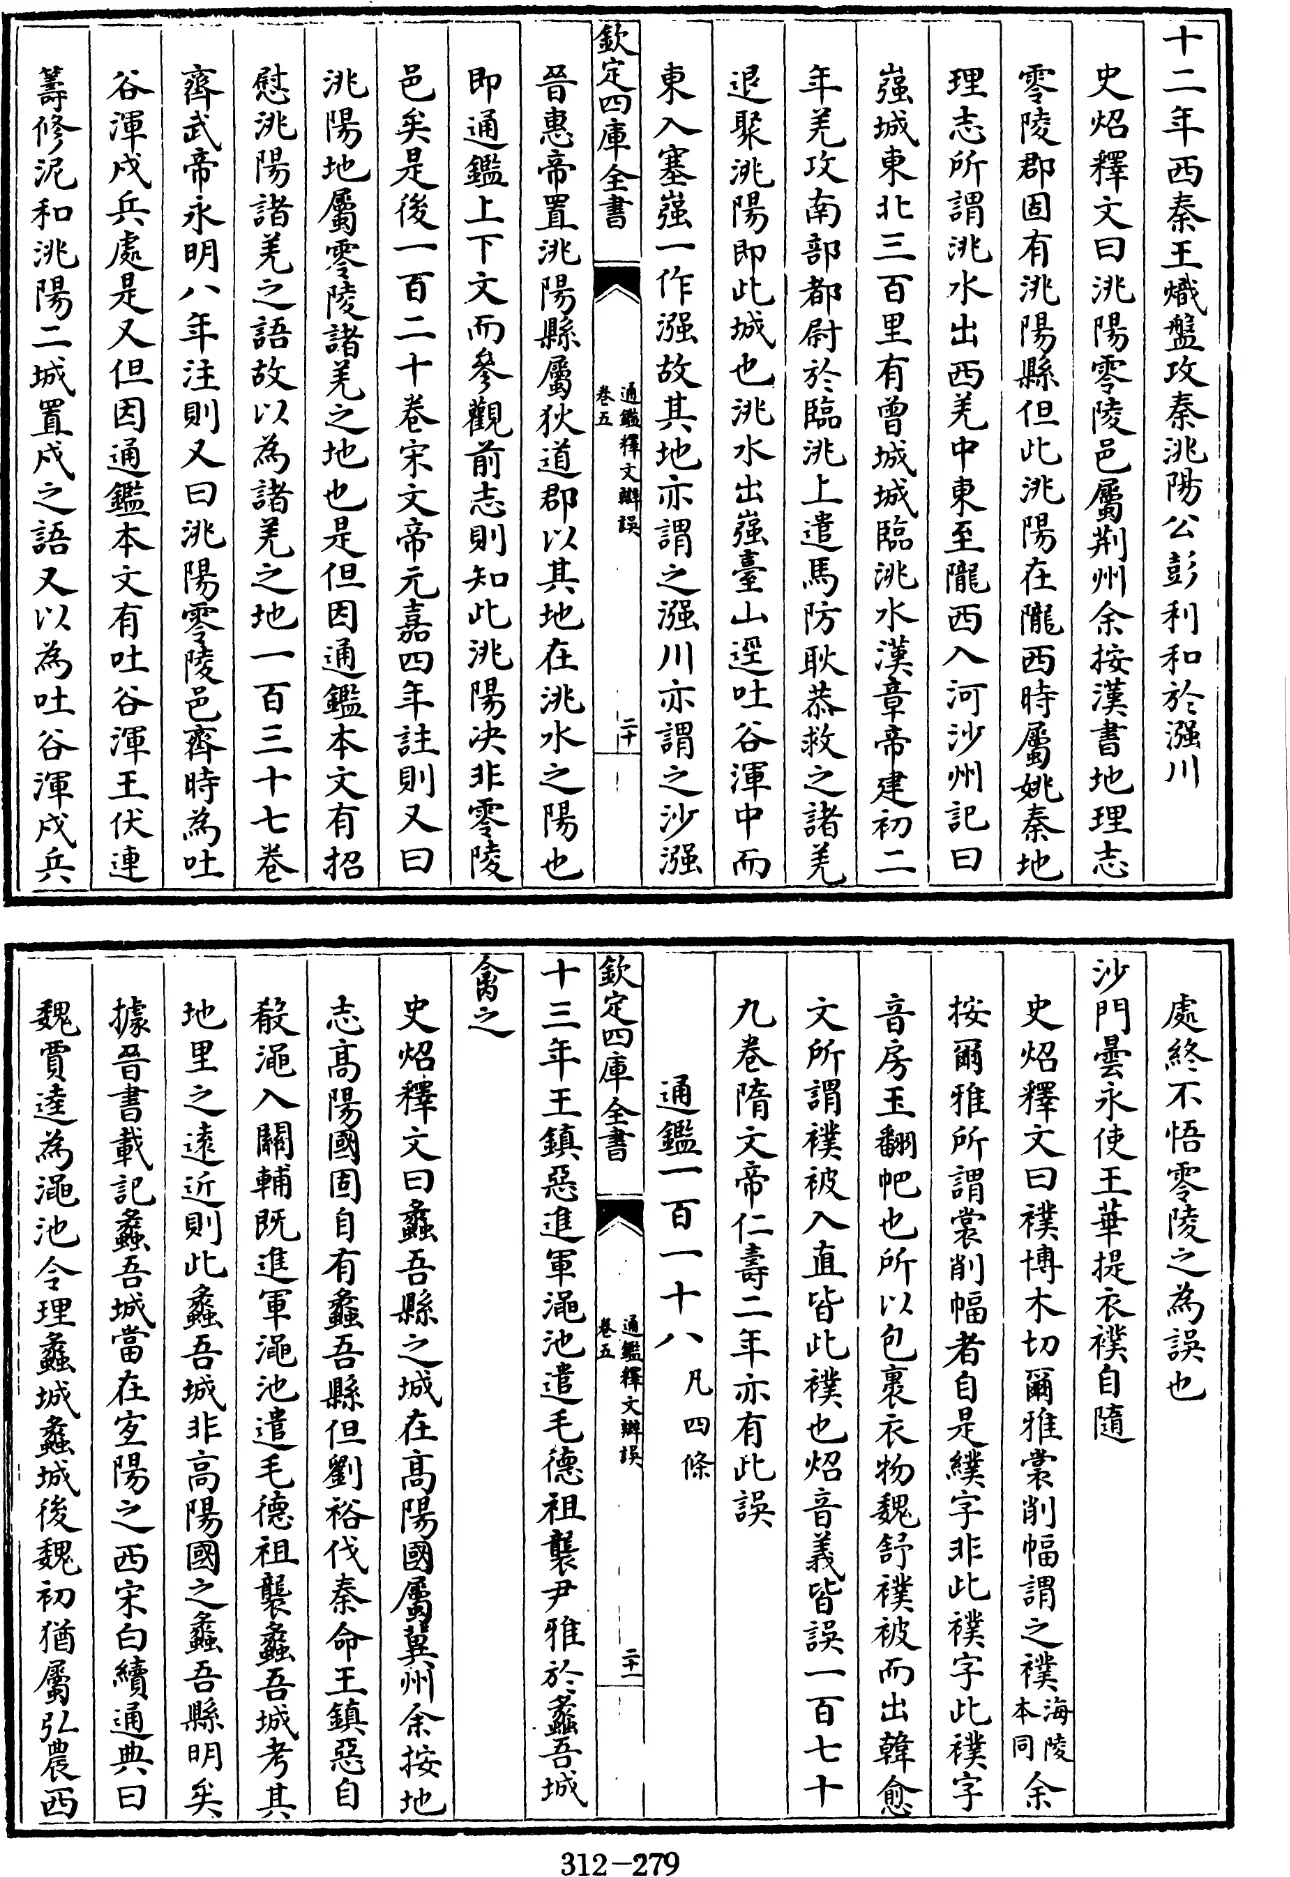 十二年西秦王熾盤攻秦洮陽公彭利和於漒川
史炤釋文曰洮陽零陵邑屬荆州余按漢書地理志
零陵郡固有洮陽縣但此洮陽在隴西時屬姚秦地
理志所謂洮水出西羌中東至隴西入河沙州記曰
嵹城東北三百里有曾城城臨洮水漢章帝建初二
年羌攻南部都尉於臨洮上遣馬防耿恭救之諸羌
退聚洮陽即此城也洮水出嵹臺山逕吐谷渾中而
東入塞嵹一作漒故其地亦謂之漒川亦謂之沙漒
欽定四庫全書
通鑑釋文辯誤
卷五
二十
晉惠帝置洮陽縣屬狄道郡以其地在洮水之陽也
即通鑑上下文而參觀前志則知此洮陽决非零陵
邑矣是後一百二十卷宋文帝元嘉四年註則又曰
洮陽地屬零陵諸羌之地也是但因通鑑本文有招
慰洮陽諸羌之語故以為諸羌之地一百三十七卷
齊武帝永明八年注則又曰洮陽零陵邑齊時為吐
谷渾戍兵處是又但因通鑑本文有吐谷渾王伏連
籌修泥和洮陽二城置戍之語又以為吐谷渾戍兵
處終不悟零陵之為誤也
沙門曇永使王華提衣襆自隨
史炤釋文曰襆博木切爾雅裳削幅謂之襆海陵本同余
按爾雅所謂裳削幅者自是纀字非此襆字此襆字
音房玉翻帊也所以包裹衣物魏舒襆被而出韓愈
文所謂襆被入直皆此襆也炤音義皆誤一百七十
九卷隋文帝仁壽二年亦有此誤
通鑑一百一十八凡四條
欽定四庫全書
通鑑釋文辯誤
卷五
二十一
十三年王鎮惡進軍澠池遣毛德祖襲尹雅於蠡吾城
禽之
史炤釋文曰蠡吾縣之城在高陽國屬冀州余按地
志高陽國固自有蠡吾縣但劉裕伐秦命王鎮惡自
殽澠入關輔既進軍澠池遣毛德祖襲蠡吾城考其
地里之遠近則此蠡吾城非高陽國之蠡吾縣明矣
據晉書載記蠡吾城當在宐陽之西宋白續通典曰
魏賈逵為澠池令理蠡城蠡城後魏初猶屬弘農西
312-279